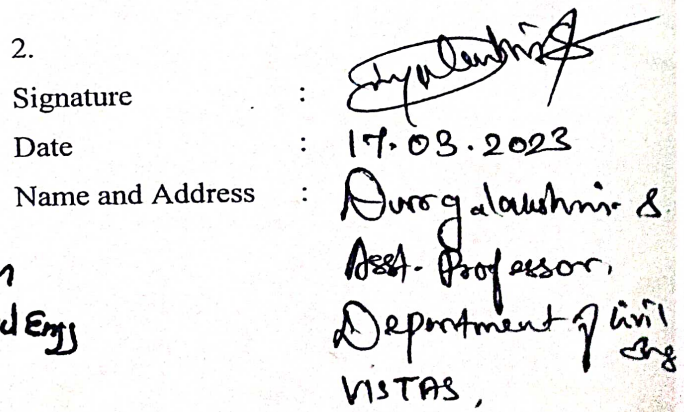 2.
Signature :
Date : 17.03.2023
Name and Address : Durgalakshmi. S
Asst. Professor,
Department of Civil Eng
VISTAS,
Engg